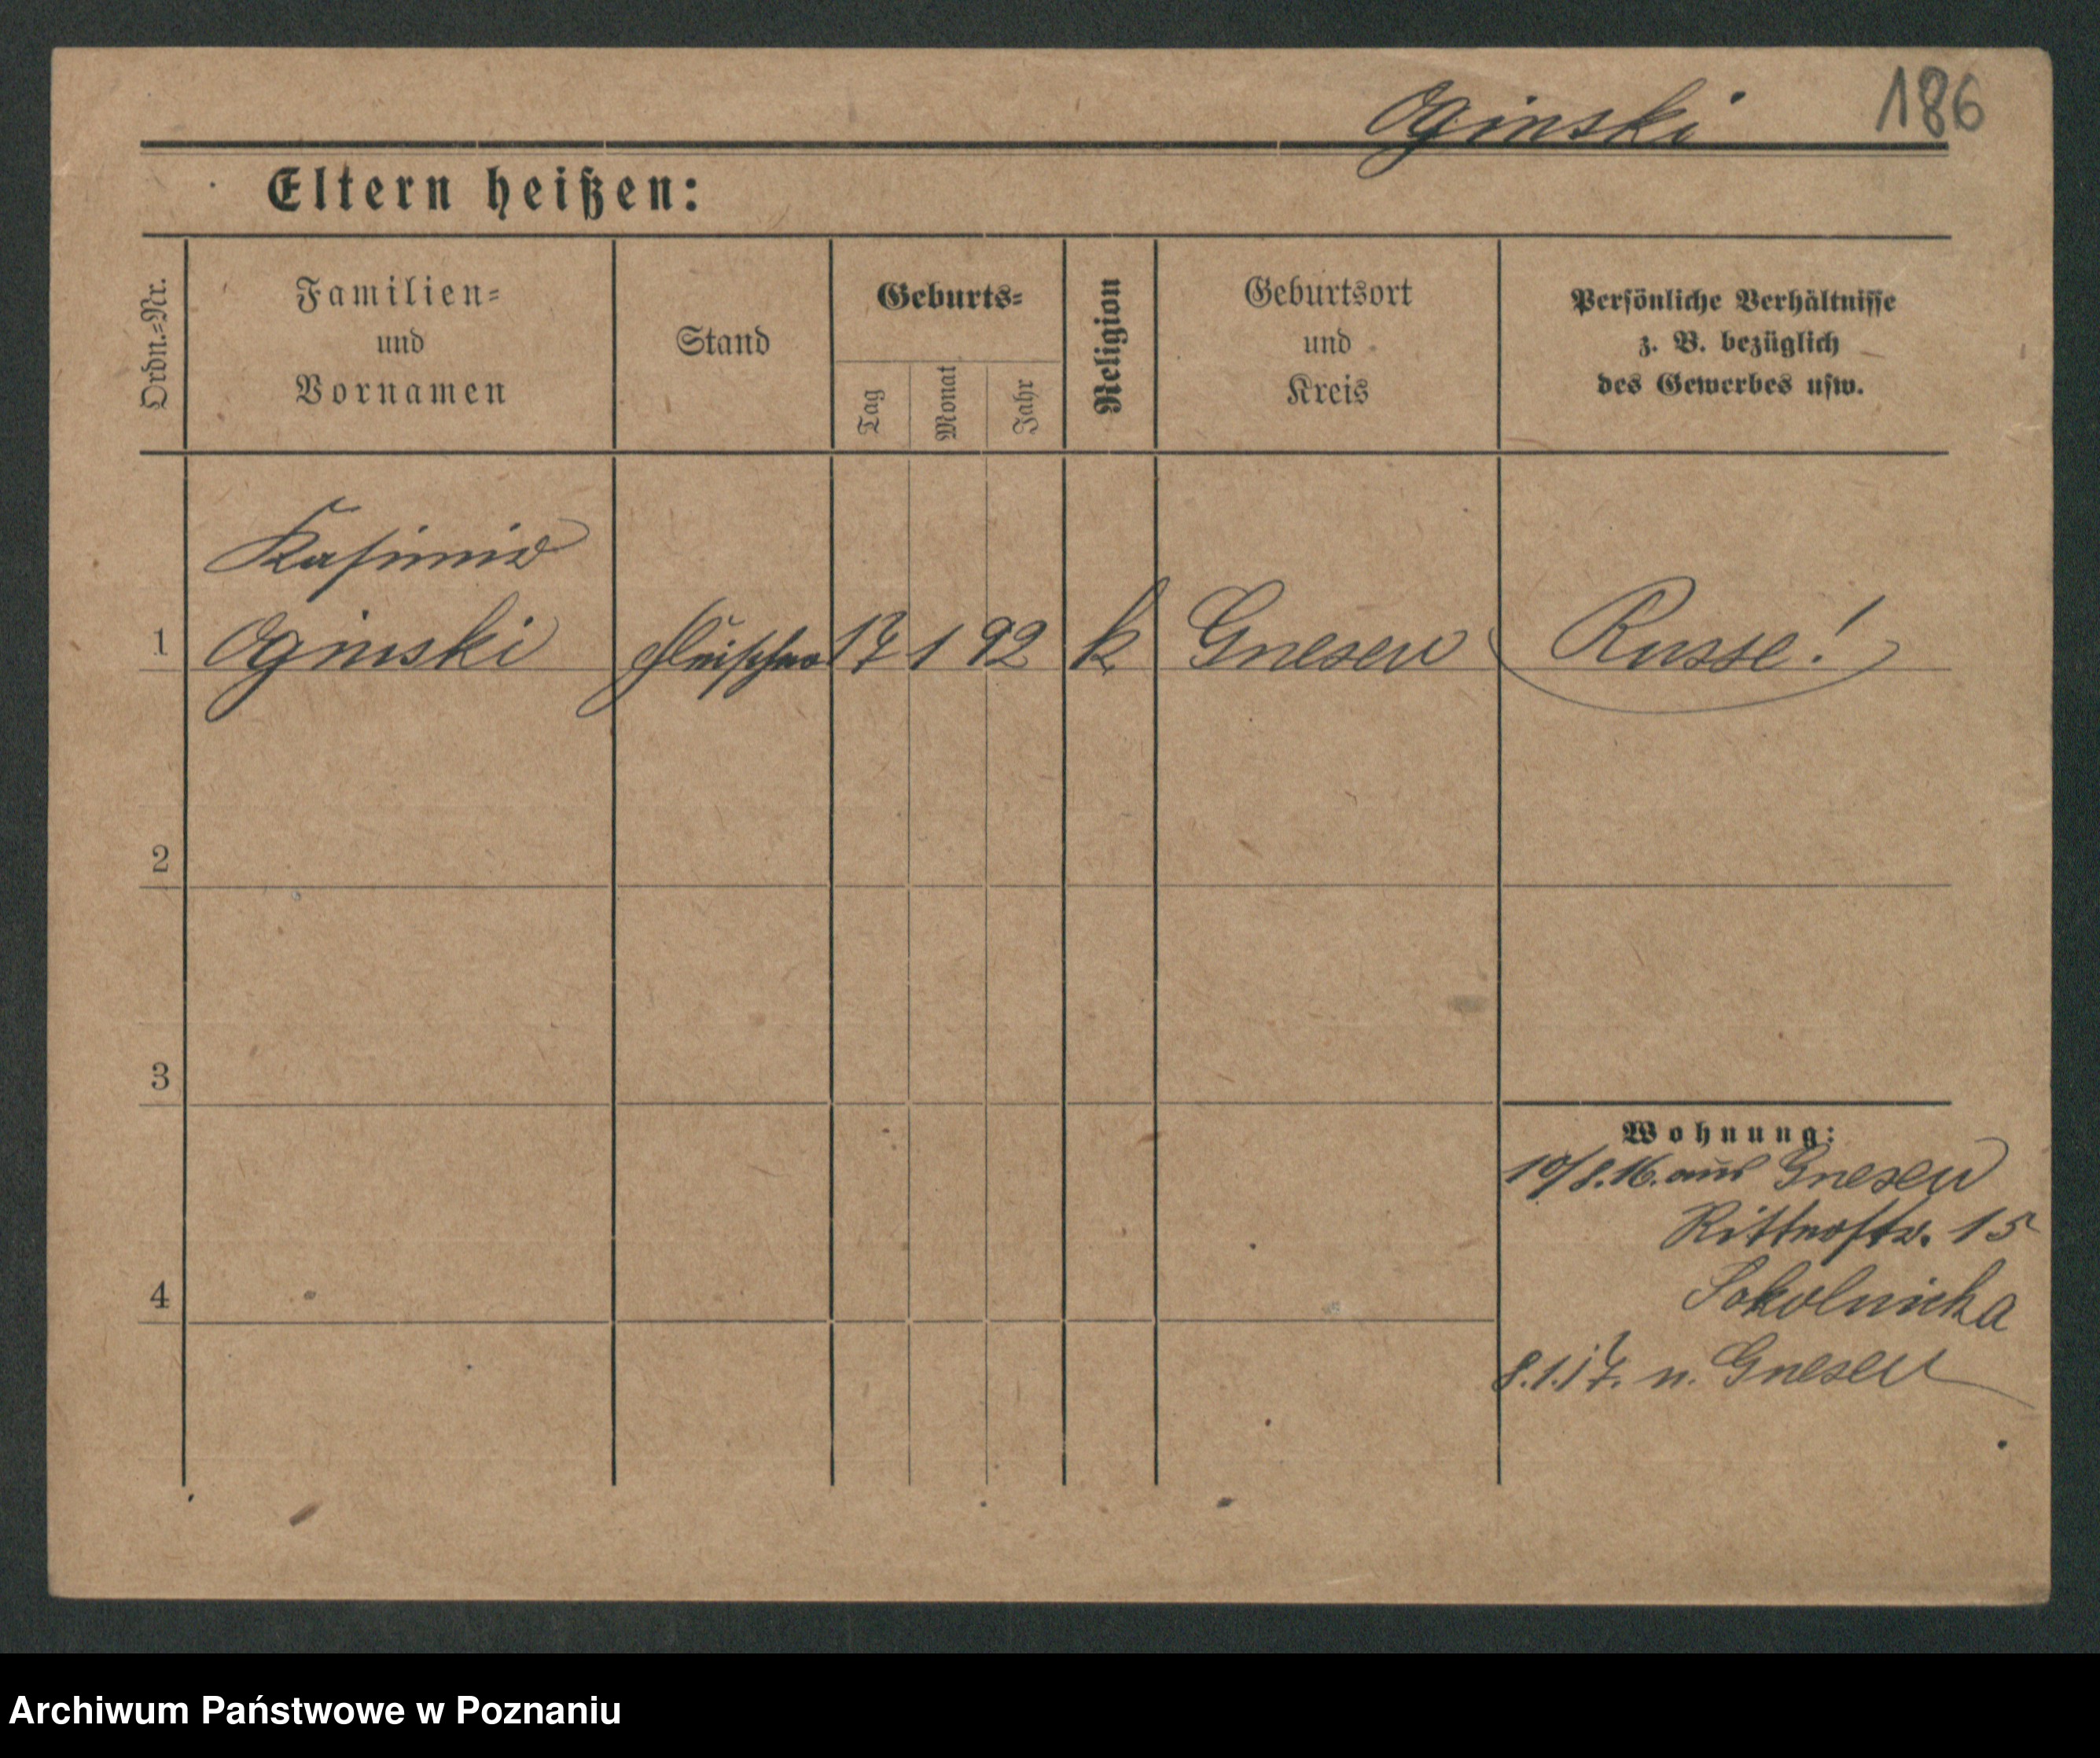 Oginski
186
Eltern heißen:
Ordn.-Nr.
Familien-
und
Vornamen
Stand
Geburts-
Tag
Monat
Jahr
Religion
Geburtsort
und
Kreis
Persönliche Verhältnisse
z. B. bezüglich
des Gewerbes usw.
Kasimir
1 Oginski Fleischer 17 1 92 k Gnesen Russe!
2
3
4
Wohnung:
10/8.16. aus Gnesen
Ritterstr. 15
Sokolnicka
8.1.17. n. Gnesen
Archiwum Państwowe w Poznaniu